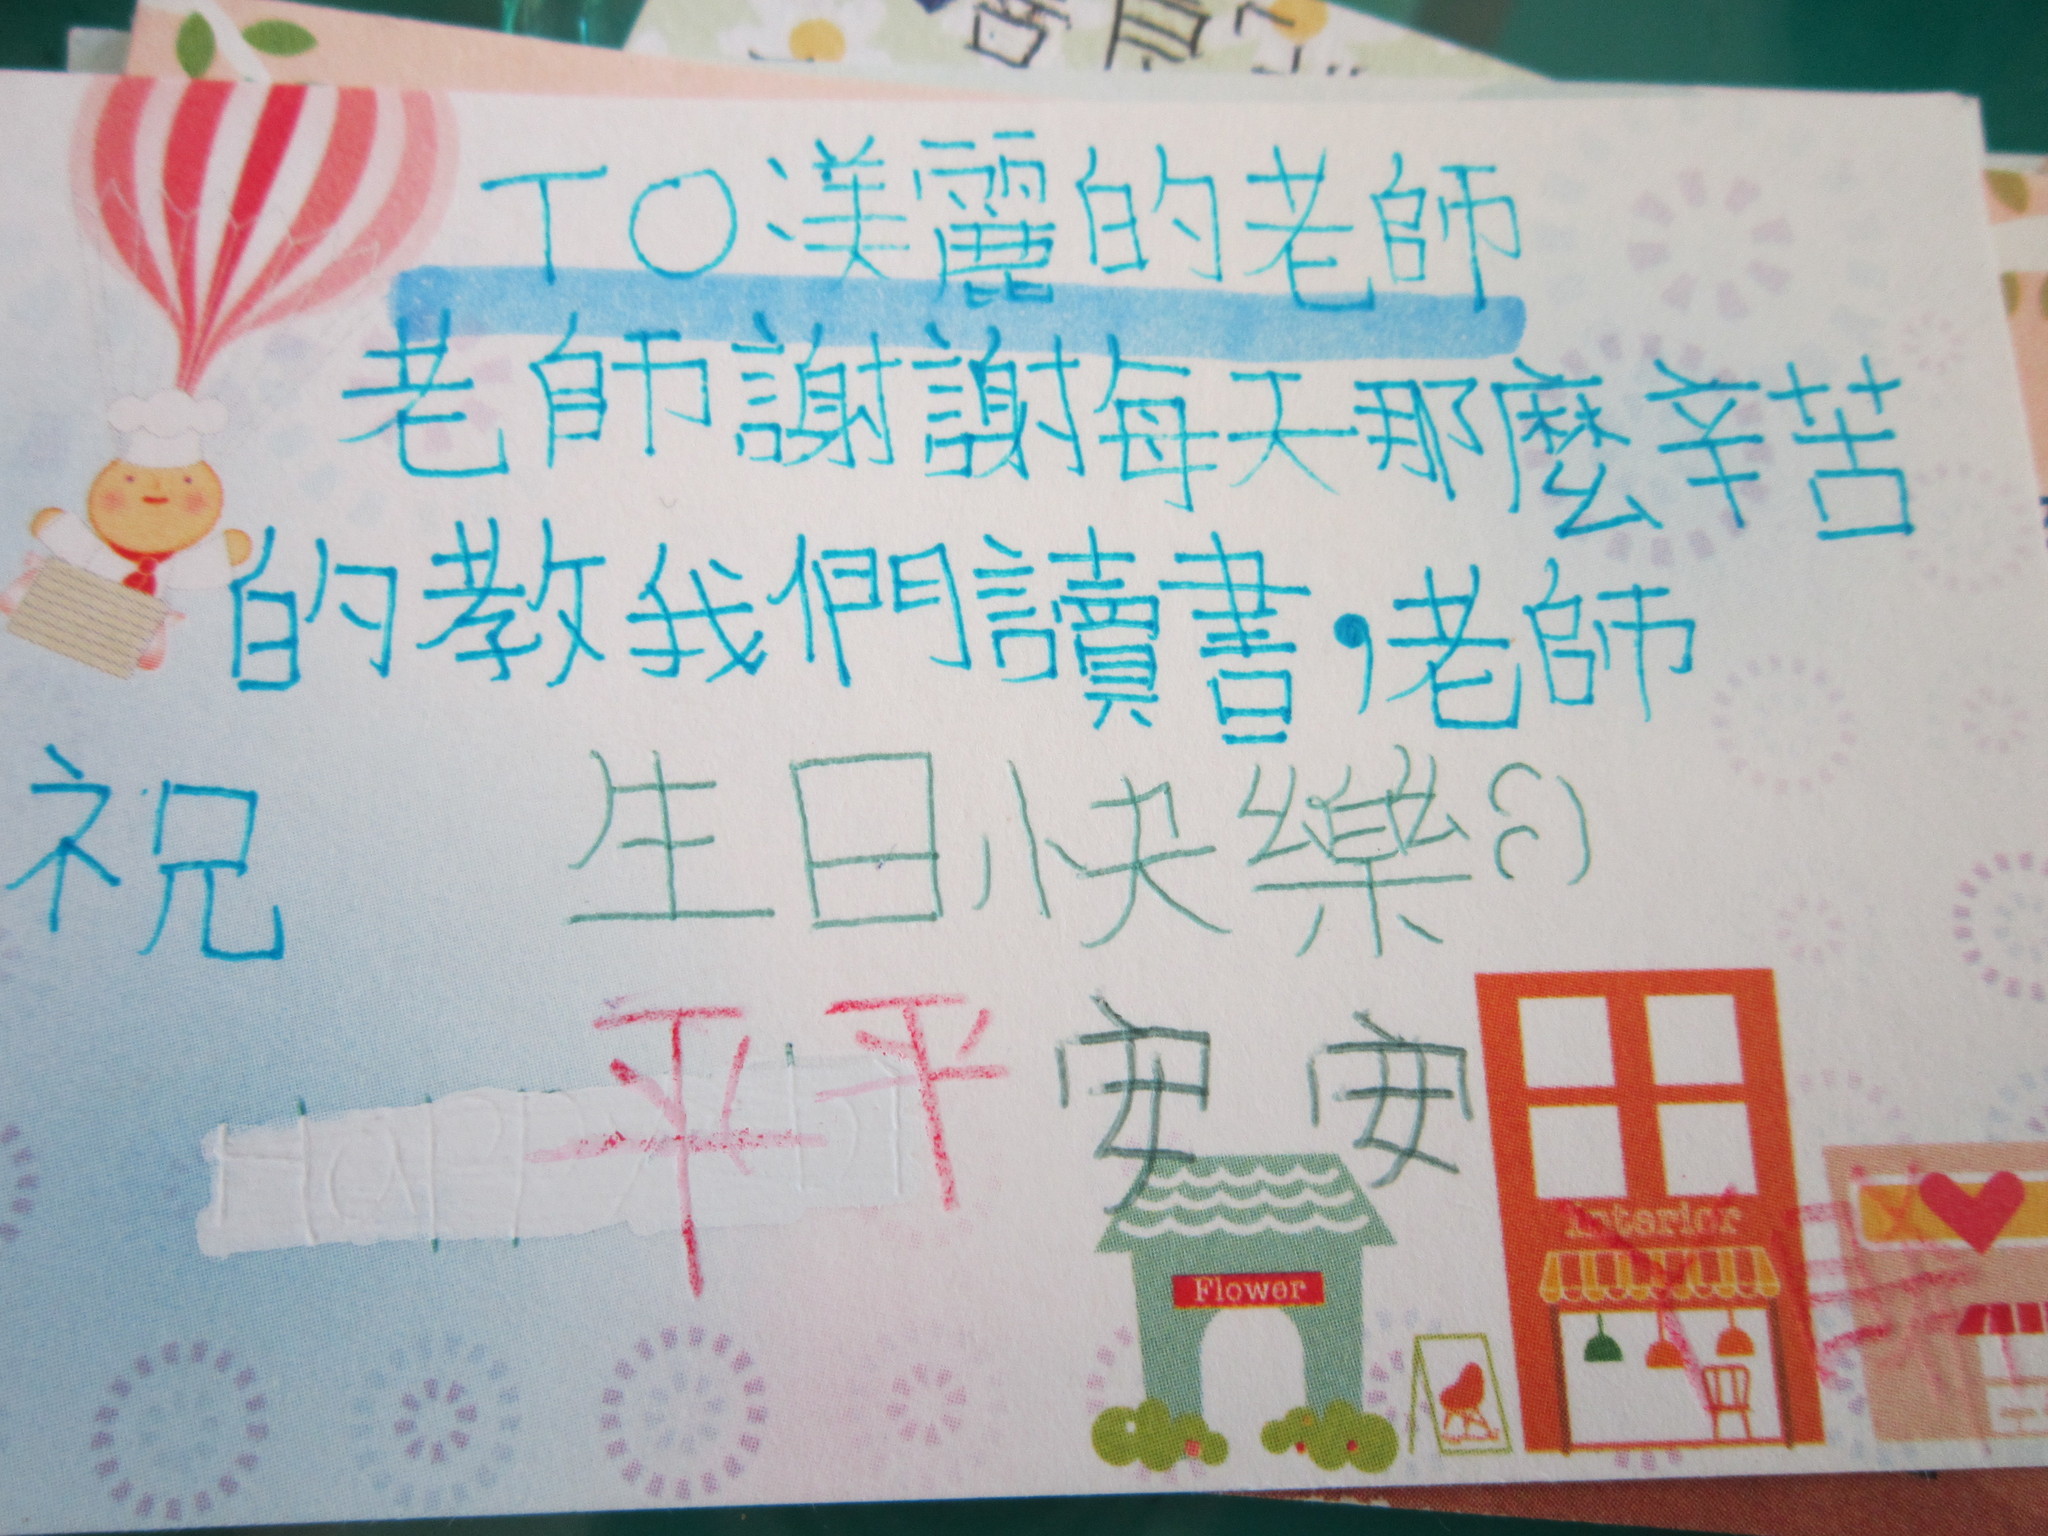 TO渼麗的老師
老師謝謝每天那麼辛苦
的教我們讀書,老師
祝 生日快樂:)
平平安安
Flower
Interior